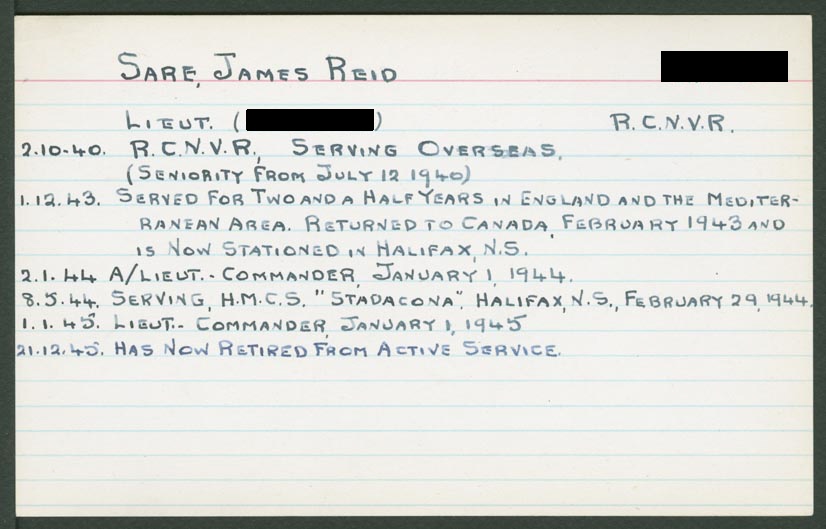 SARE, JAMES REID
LIEUT. ( ) R.C.N.V.R.
2.10.40. R.C.N.V.R., SERVING OVERSEAS.
(SENIORITY FROM JULY 12 1940)
1.12.43. SERVED FOR TWO AND A HALF YEARS IN ENGLAND AND THE MEDITER-
RANEAN AREA. RETURNED TO CANADA, FEBRUARY 1943 AND
IS NOW STATIONED IN HALIFAX, N.S.
2.1.44 A/LIEUT.- COMMANDER, JANUARY 1, 1944.
8.5.44. SERVING, H.M.C.S. "STADACONA". HALIFAX, N.S., FEBRUARY 29, 1944.
1.1.45. LIEUT.- COMMANDER, JANUARY 1, 1945
21.12.45. HAS NOW RETIRED FROM ACTIVE SERVICE.